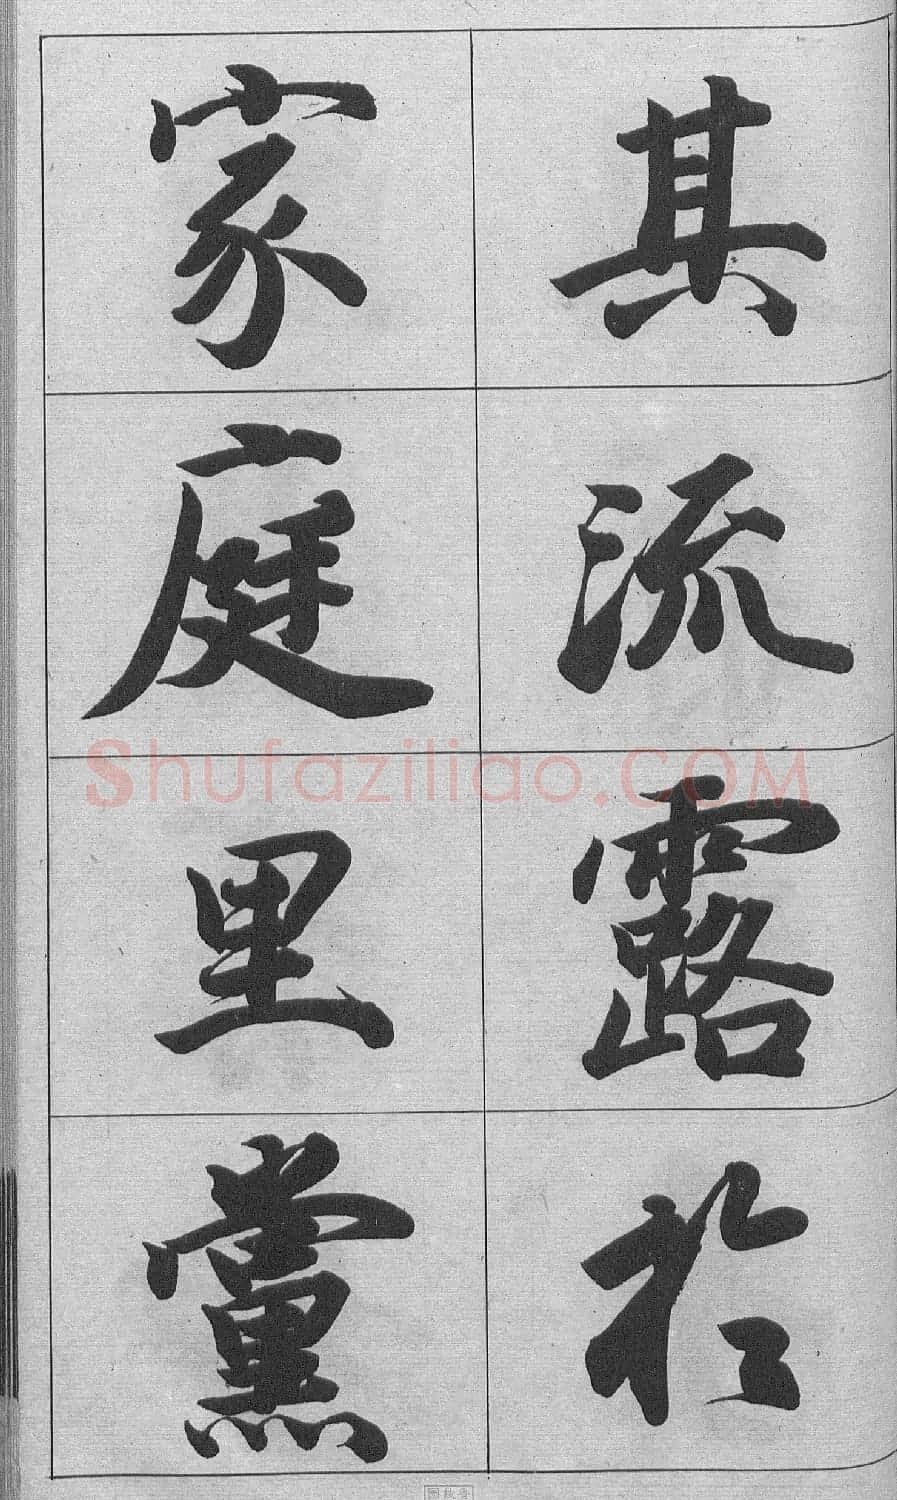 其流露於
家庭里黨
Shufaziliao.COM